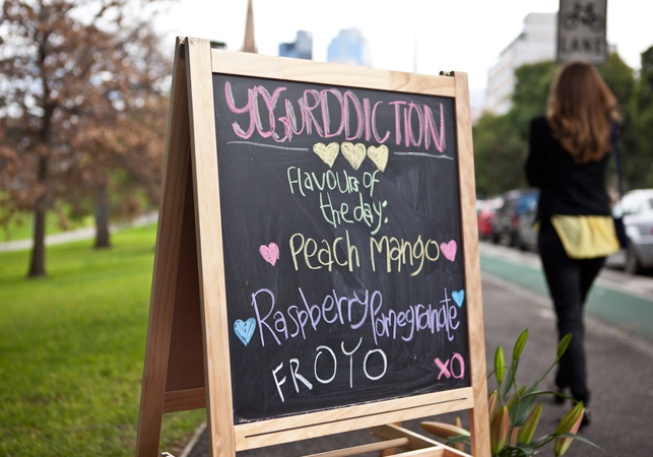 LANE
YOGURDDICTION
flavours of
the day:
Peach Mango
Raspberry Pomegranate
FROYO
XO